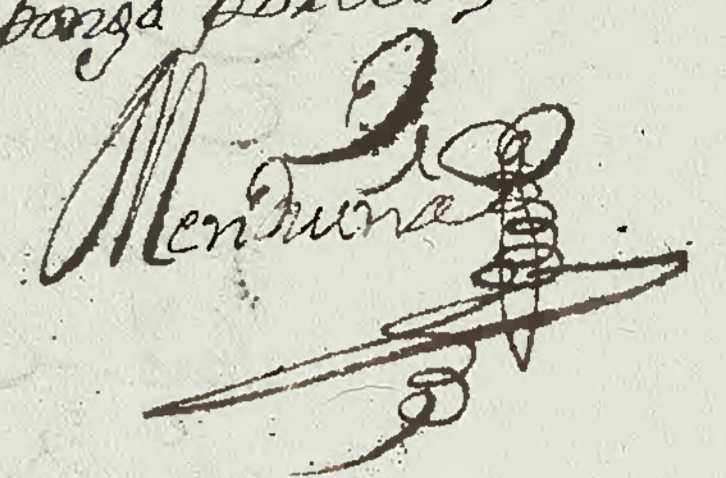 ponga
Menduiña